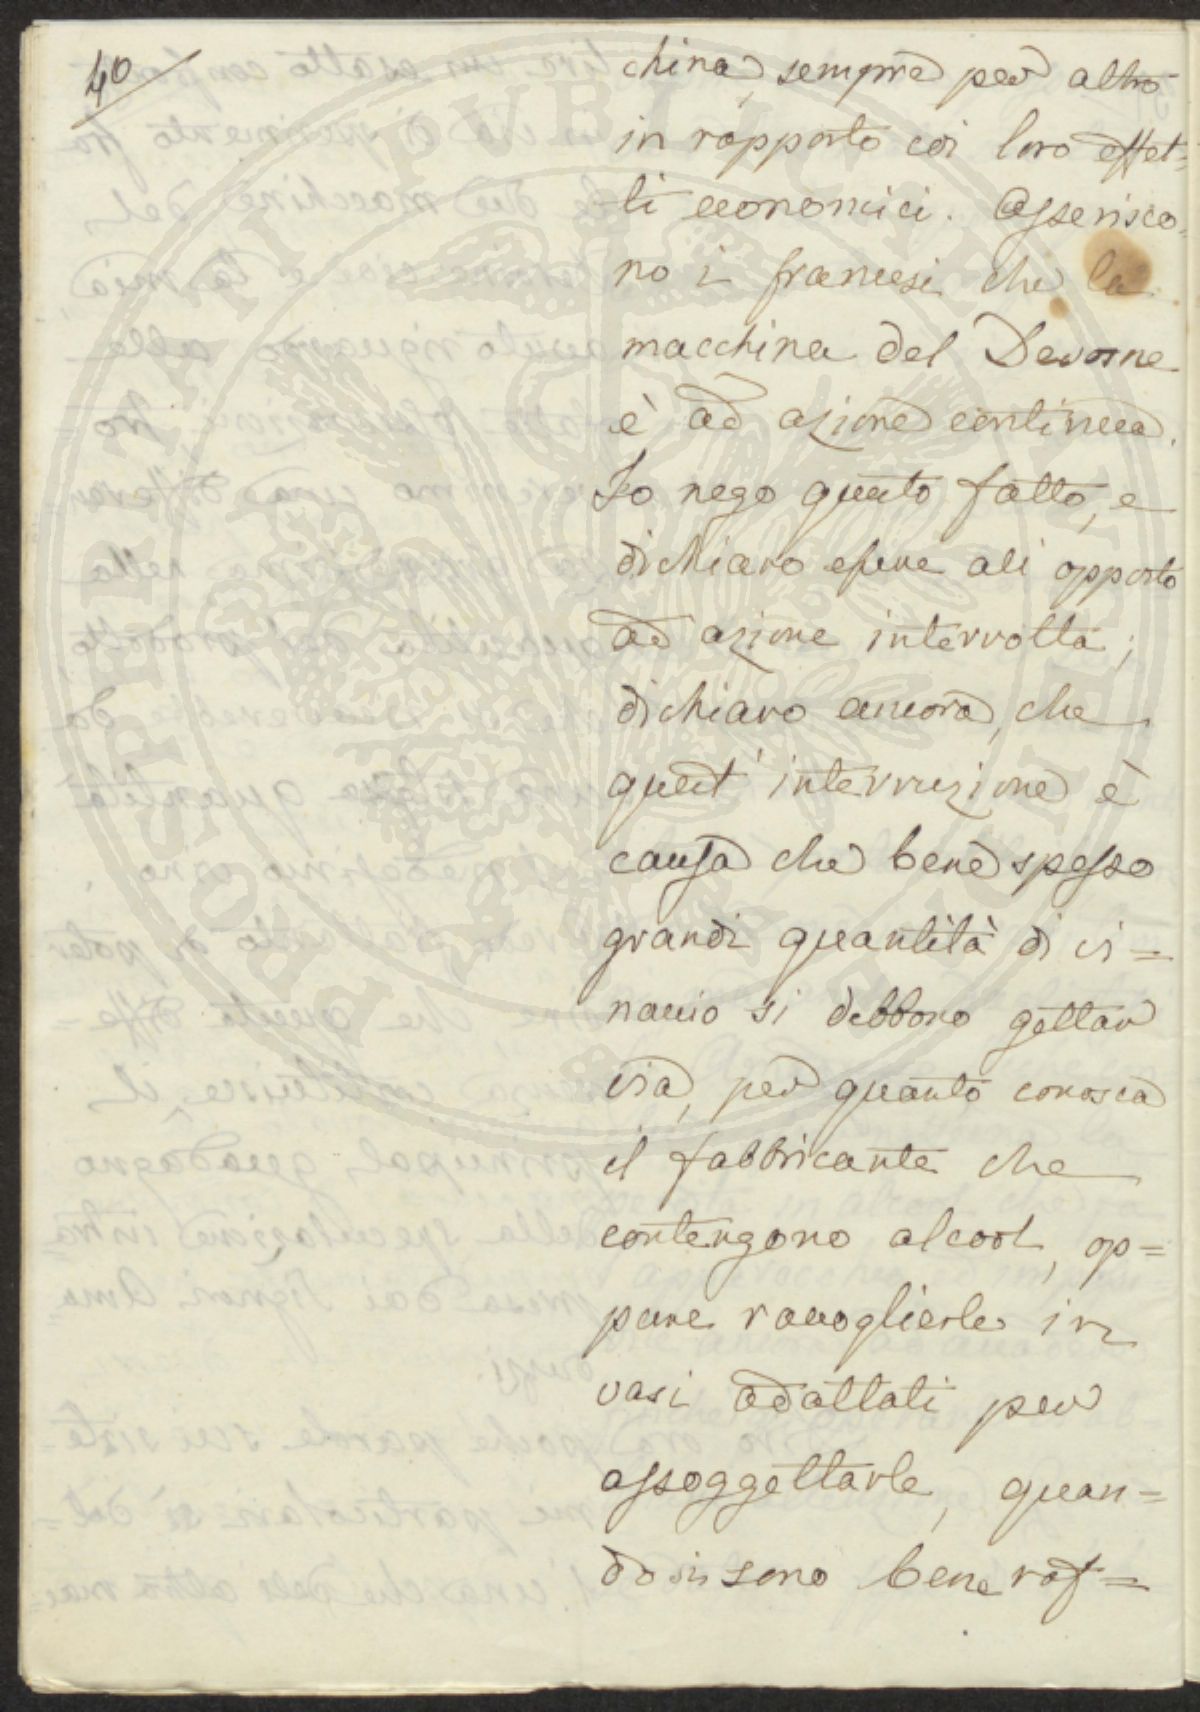 40
china, sempre per altro
in rapporto coi loro effet=
ti economici. Asserisco=
no i francesi che la
macchina del Devosne
è ad azione continua.
Io nego questo fatto, e
dichiaro essere all opposto
ad azione interrotta;
dichiaro ancora, che
quest' interruzione è
causa che bene spesso
grandi quantità di vi=
naccio si debbono gettar
via, per quanto conosca
il fabbricante che
contengono alcool, op=
pure raccoglierle in
vasi adattati per
assoggettarle, quan=
do si sono bene raf=
PROSPERITATI PVBLICAE